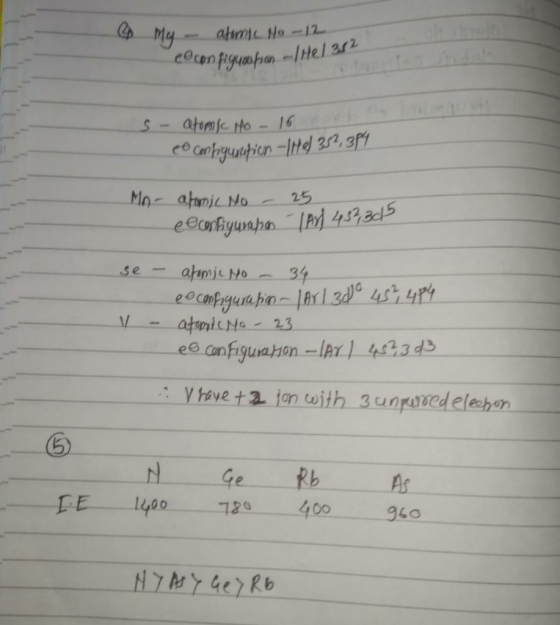 ④ Mg - atomic No - 12
e⊖configuration - |He| 3s²
S - atomic No - 16
e⊖ configuration - |He| 3s², 3p4
Mn - atomic No - 25
e⊖configuration - |Ar| 4s², 3d5
se - atomic No - 34
e⊖configuration - |Ar| 3d¹⁰ 4s², 4p4
V - atomic No - 23
e⊖ configuration - |Ar| 4s², 3d3
∴ V have +2 ion with 3 unpaired electron
⑤
N Ge Rb As
I.E 1400 780 400 960
N > As > Ge > Rb